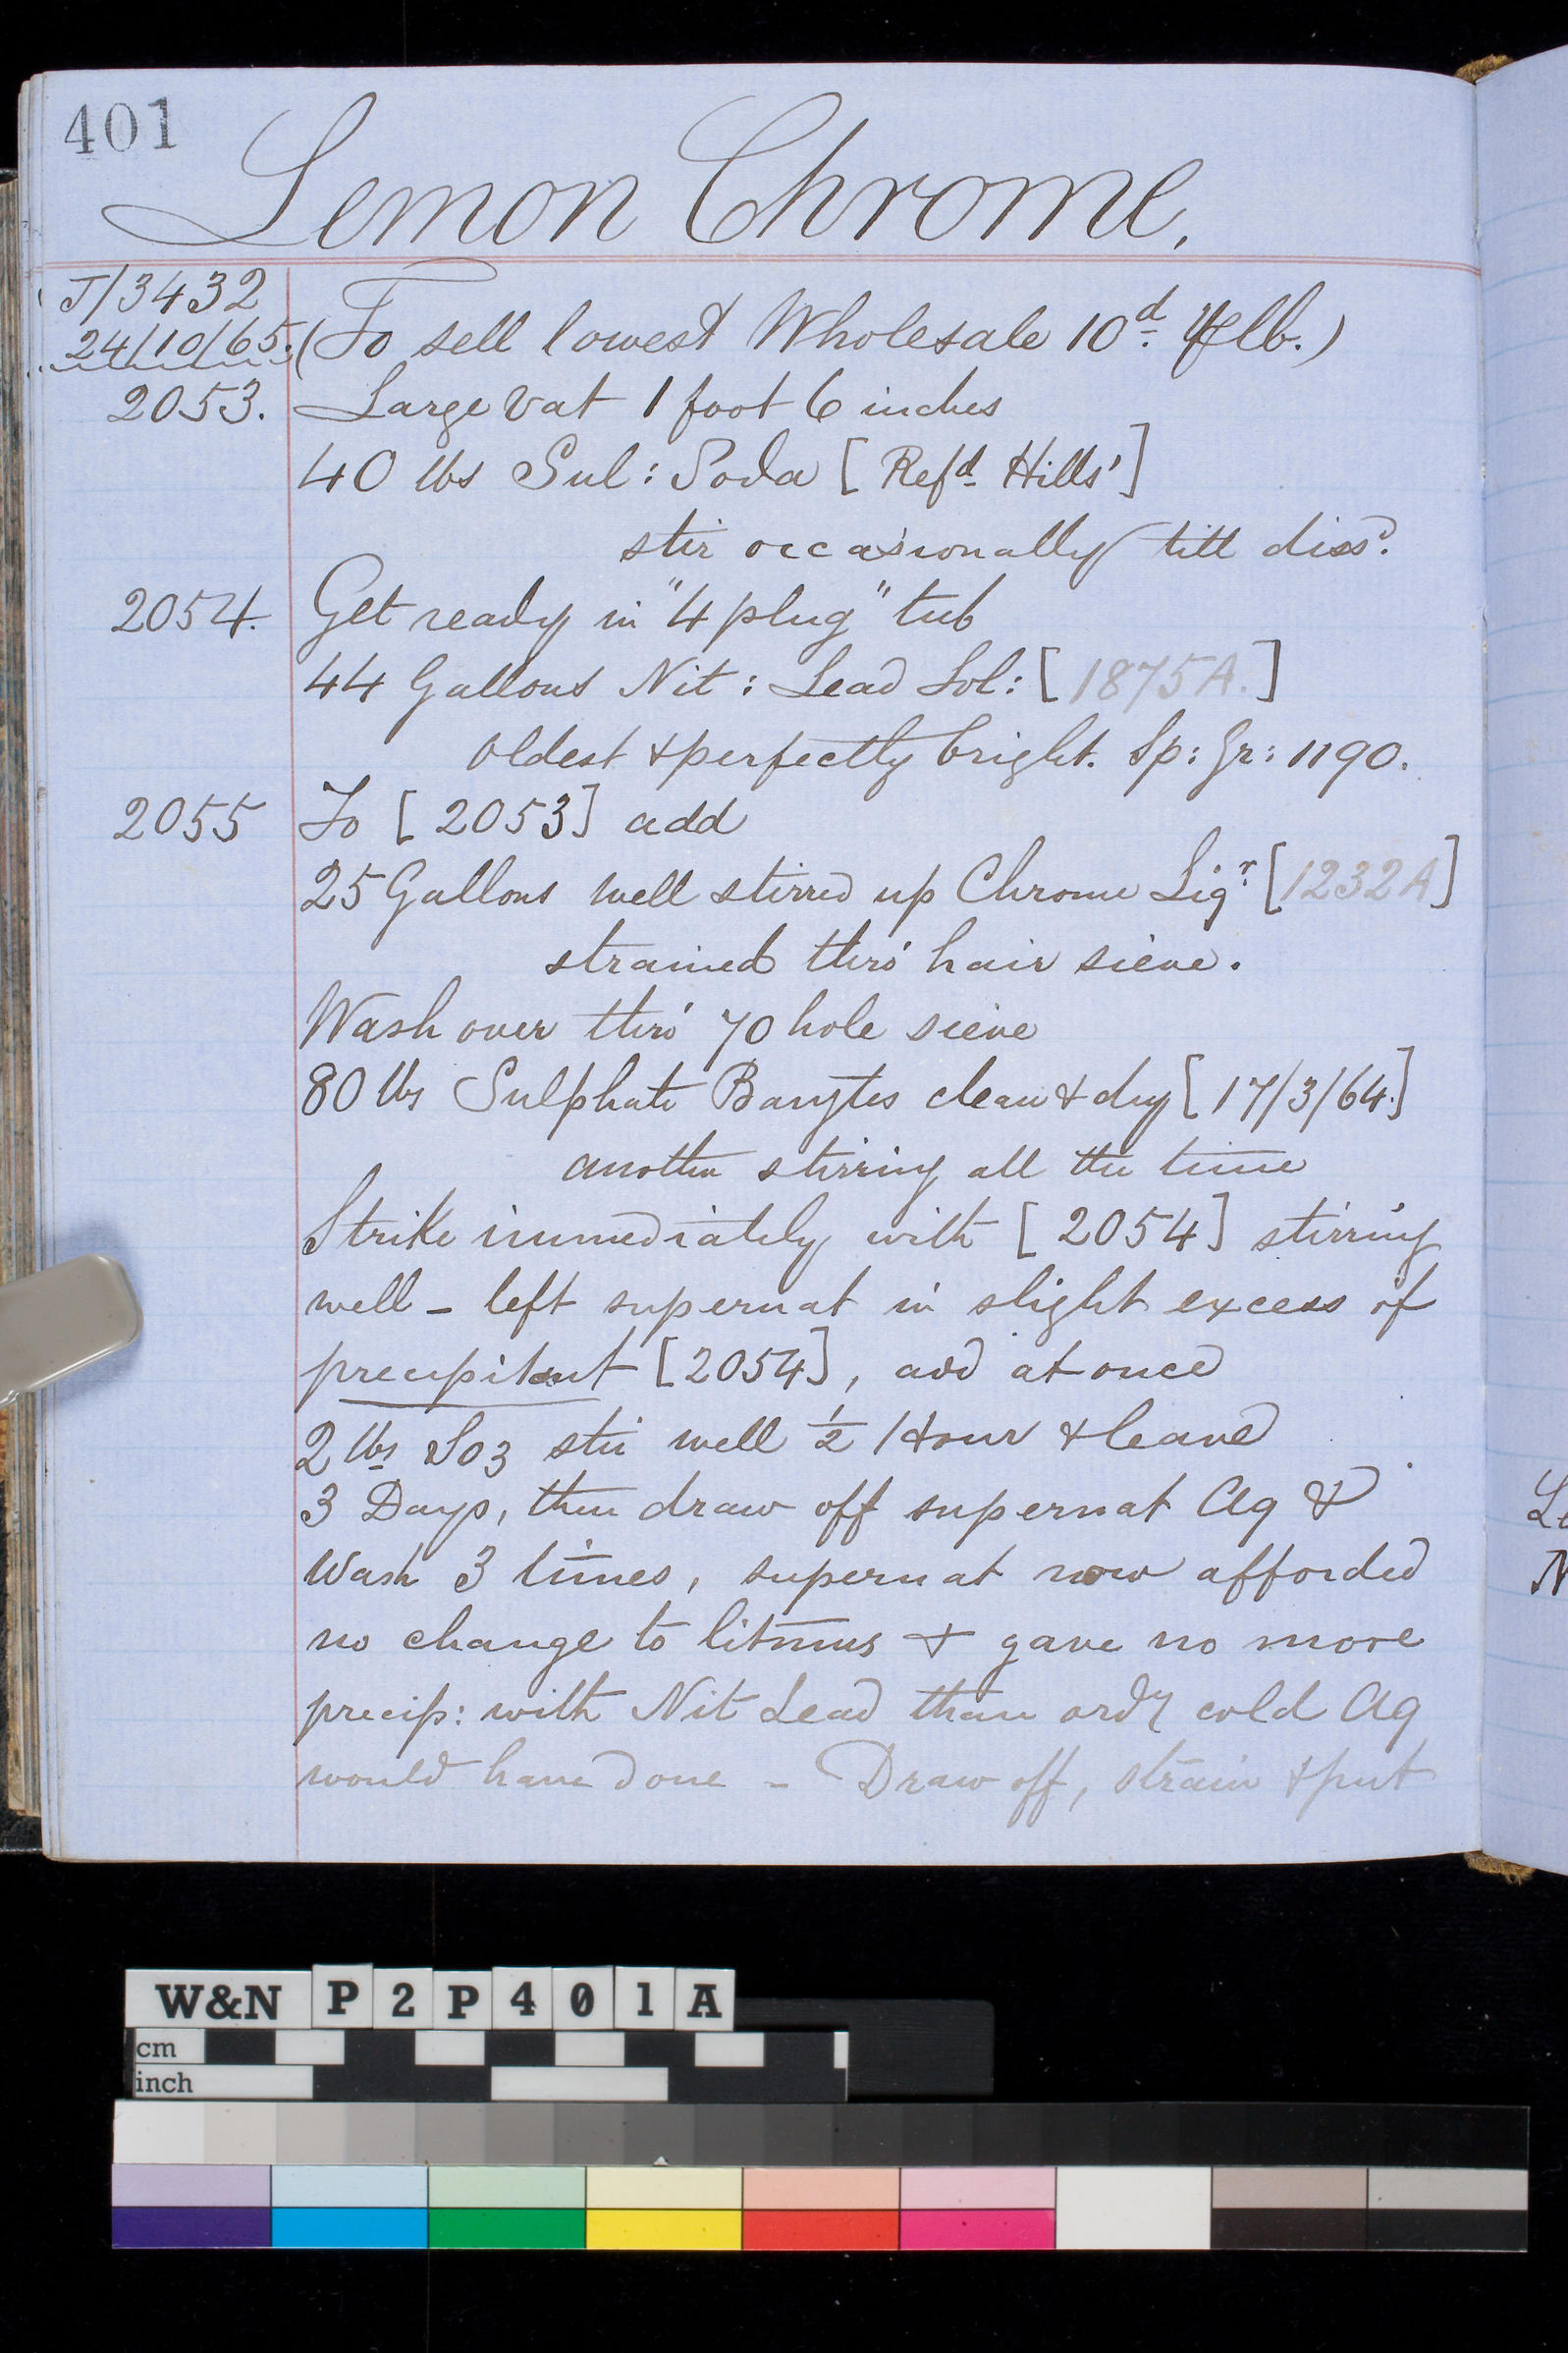 401
Lemon Chrome.
J/3432
24/10/65.
(To sell lowest Wholesale 10d. ⅌ lb.)
2053. Large Vat 1 foot 6 inches
40 lbs Sul: Soda [Refd Hills']
stir occasionally till dissd.
2054. Get ready in "4 plug" tub
44 Gallons Nit: Lead Sol: [1875A.]
oldest & perfectly bright. Sp: Gr: 1190.
2055 To [2053] add
25 Gallons well stirred up Chrome Liqr. [1232A]
strained thro' hair sieve.
Wash over thro' 70 hole sieve
80 lbs Sulphate Barytes clean & dry [17/3/64.]
another stirring all the time
Strike immediately with [2054] stirring
well - left supernat in slight excess of
precipitant [2054], add at once
2 lbs SO3 stir well ½ Hour & leave
3 Days, then draw off supernat Aq &
Wash 3 times, supernat now afforded
no change to litmus & gave no more
precip: with Nit Lead than ordy cold Aq
would have done - Draw off, strain & put
Le
N
W&N P2P401A
cm
inch